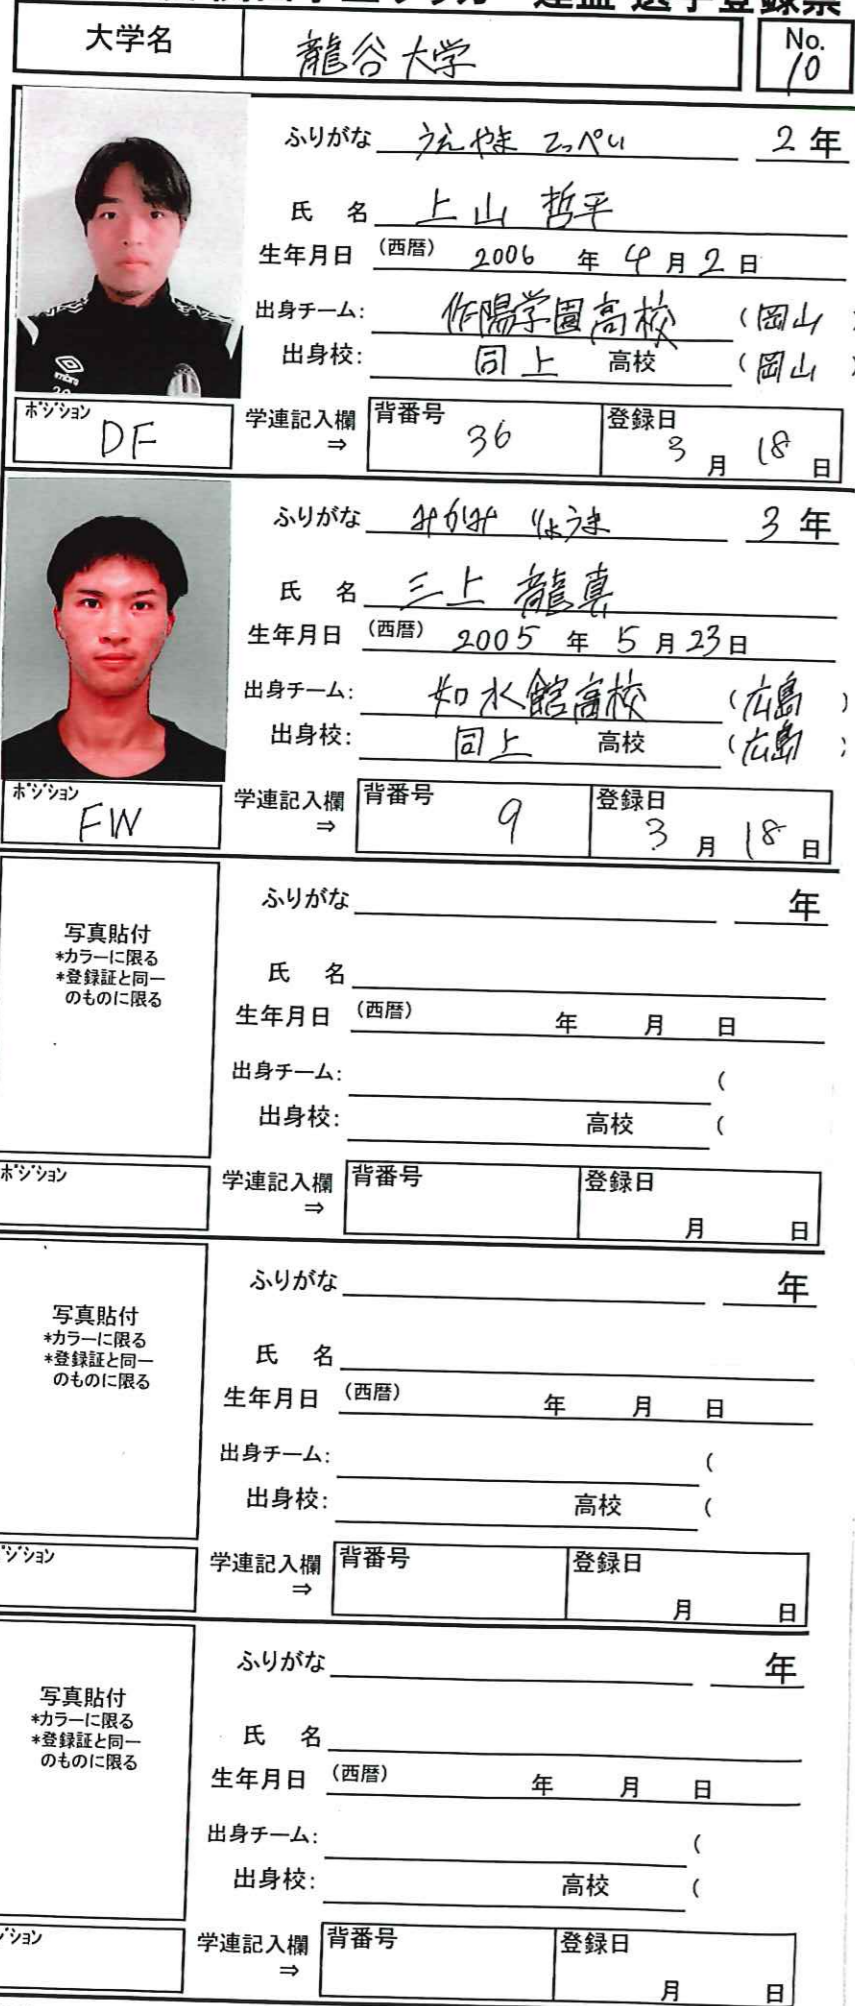 連盟 選手登録票
大学名 龍谷大学 No. 10
ふりがな うえやま てっぺい 2年
氏 名 上山 哲平
生年月日 (西暦) 2006 年 4 月 2 日
出身チーム: 作陽学園高校 (岡山
出身校: 同上 高校 (岡山
umbro
ポジション DF 学連記入欄 ⇒ 背番号 36 登録日 3 月 18 日
ふりがな みかみ りょうま 3年
氏 名 三上 龍真
生年月日 (西暦) 2005 年 5 月 23 日
出身チーム: 如水館高校 (広島 )
出身校: 同上 高校 (広島 )
ポジション FW 学連記入欄 ⇒ 背番号 9 登録日 3 月 18 日
写真貼付
*カラーに限る
*登録証と同一
のものに限る
ふりがな 年
氏 名
生年月日 (西暦) 年 月 日
出身チーム: (
出身校: 高校 (
ポジション 学連記入欄 ⇒ 背番号 登録日 月 日
写真貼付
*カラーに限る
*登録証と同一
のものに限る
ふりがな 年
氏 名
生年月日 (西暦) 年 月 日
出身チーム: (
出身校: 高校 (
ジション 学連記入欄 ⇒ 背番号 登録日 月 日
写真貼付
*カラーに限る
*登録証と同一
のものに限る
ふりがな 年
氏 名
生年月日 (西暦) 年 月 日
出身チーム: (
出身校: 高校 (
ション 学連記入欄 ⇒ 背番号 登録日 月 日